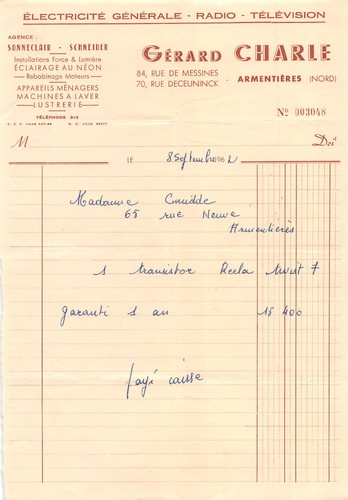 ÉLECTRICITÉ GÉNÉRALE - RADIO - TÉLÉVISION
AGENCE :
SONNECLAIR - SCHNEIDER
Installations Force & Lumière
ÉCLAIRAGE AU NÉON
Rebobinage Moteurs
APPAREILS MÉNAGERS
MACHINES A LAVER
LUSTRERIE
TÉLÉPHONE 213
GÉRARD CHARLE
84, RUE DE MESSINES
70, RUE DECEUNINCK - ARMENTIÈRES (NORD)
No 003048
M Doit
LE 8 Septembre 1962
Madame
65 rue Neuve
Armentières
1 transistor Reela twist 7
garanti 1 an 15 400
payé caisse